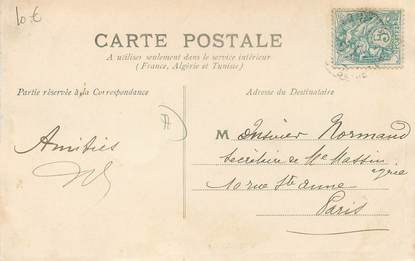 10 €
CARTE POSTALE
A utiliser seulement dans le service intérieur
(France, Algérie et Tunisie)
Partie réservée à la Correspondance
Adresse du Destinataire
Amitiés
M Normand
Secrétaire de Me Massin
10 rue Ste Anne
Paris